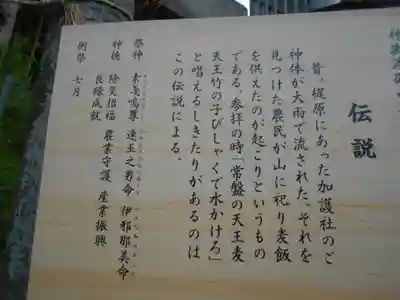 伝説
昔、梶原にあった加護社のご
神体が大雨で流された、それを
見つけた農民が山に祀り麦飯
を供えたのが起こりというもの
である。参拝の時「常盤の天王麦
天王竹の子びしゃくで水かけろ」
と唱えるしきたりがあるのは
この伝説による。
祭神 素戔嗚尊 速玉之男命 伊邪那美命
神徳 除災招福 農業守護 産業振興
良縁成就
例祭 七月